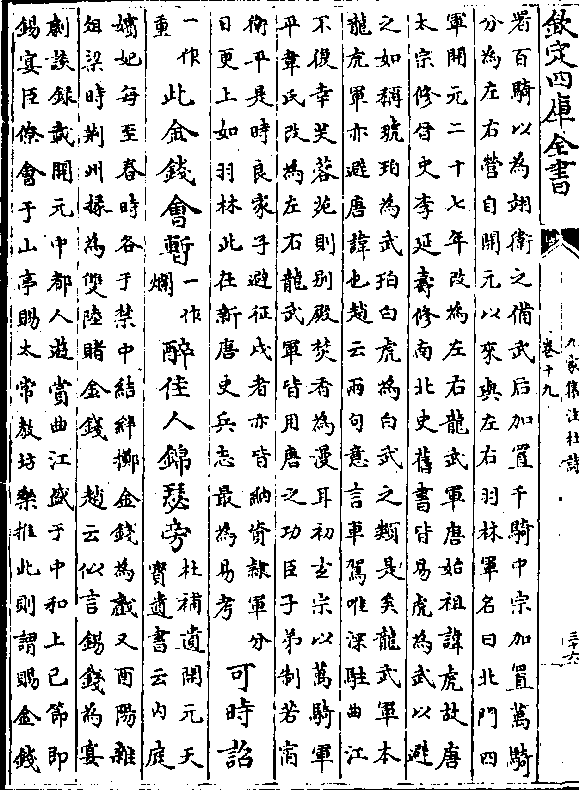 欽定四庫全書
九家集注杜詩
卷十九
三十六
者百騎以為翊衛之備武后加置千騎中宗加置萬騎
分為左右營自開元以來與左右羽林軍名曰北門四
軍開元二十七年改為左右龍武軍唐始祖諱虎故唐
太宗修晉史李延壽修南北史舊書皆易虎為武以避
之如稱琥珀為武珀白虎為白武之類是矣龍武軍本
龍虎軍亦避唐諱也趙云兩句意言車駕唯深駐曲江
不復幸芙蓉苑則別殿焚香為漫耳初玄宗以萬騎軍
平韋氏改為左右龍武軍皆用唐之功臣子弟制若宿
衛平是時良家子避征戍者亦皆納資隸軍分
日更上如羽林此在新唐史兵志最為易考
可時詔
一作
重
此金錢會暫
一作
爛
醉佳人錦瑟旁
杜補遺開元天
寶遺書云內庭
嬪妃每至春時各于禁中結絆擲金錢為戲又酉陽雜
俎梁時荊州掾為雙陸賭金錢 趙云似言錫錢為宴
劇談錄載開元中都人遊賞曲江盛于中和上已節即
錫宴臣僚會于山亭賜太常教坊樂推此則謂賜金錢